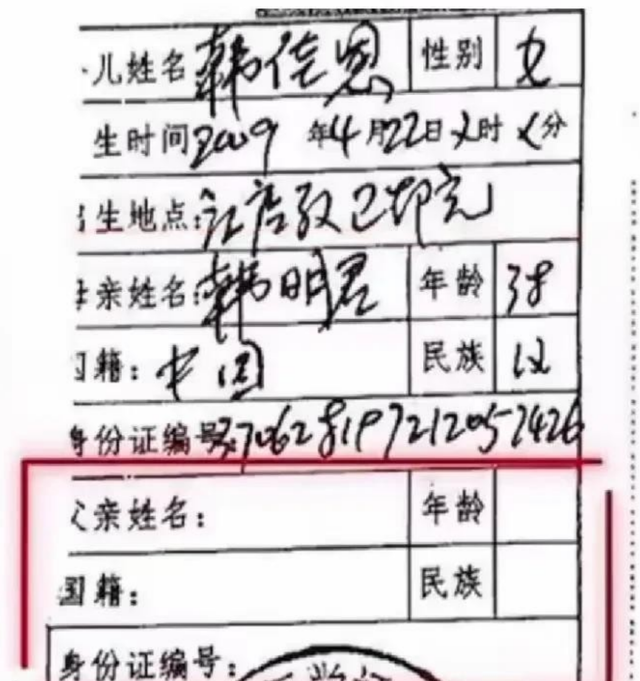 儿姓名 韩佳恩 性别 女
生时间 2009 年4月22日 X时 X分
生地点:
亲姓名: 韩明君 年龄 38
籍: 中国 民族 汉
身份证编号: 370628197212057426
父亲姓名: 年龄
国籍: 民族
身份证编号: